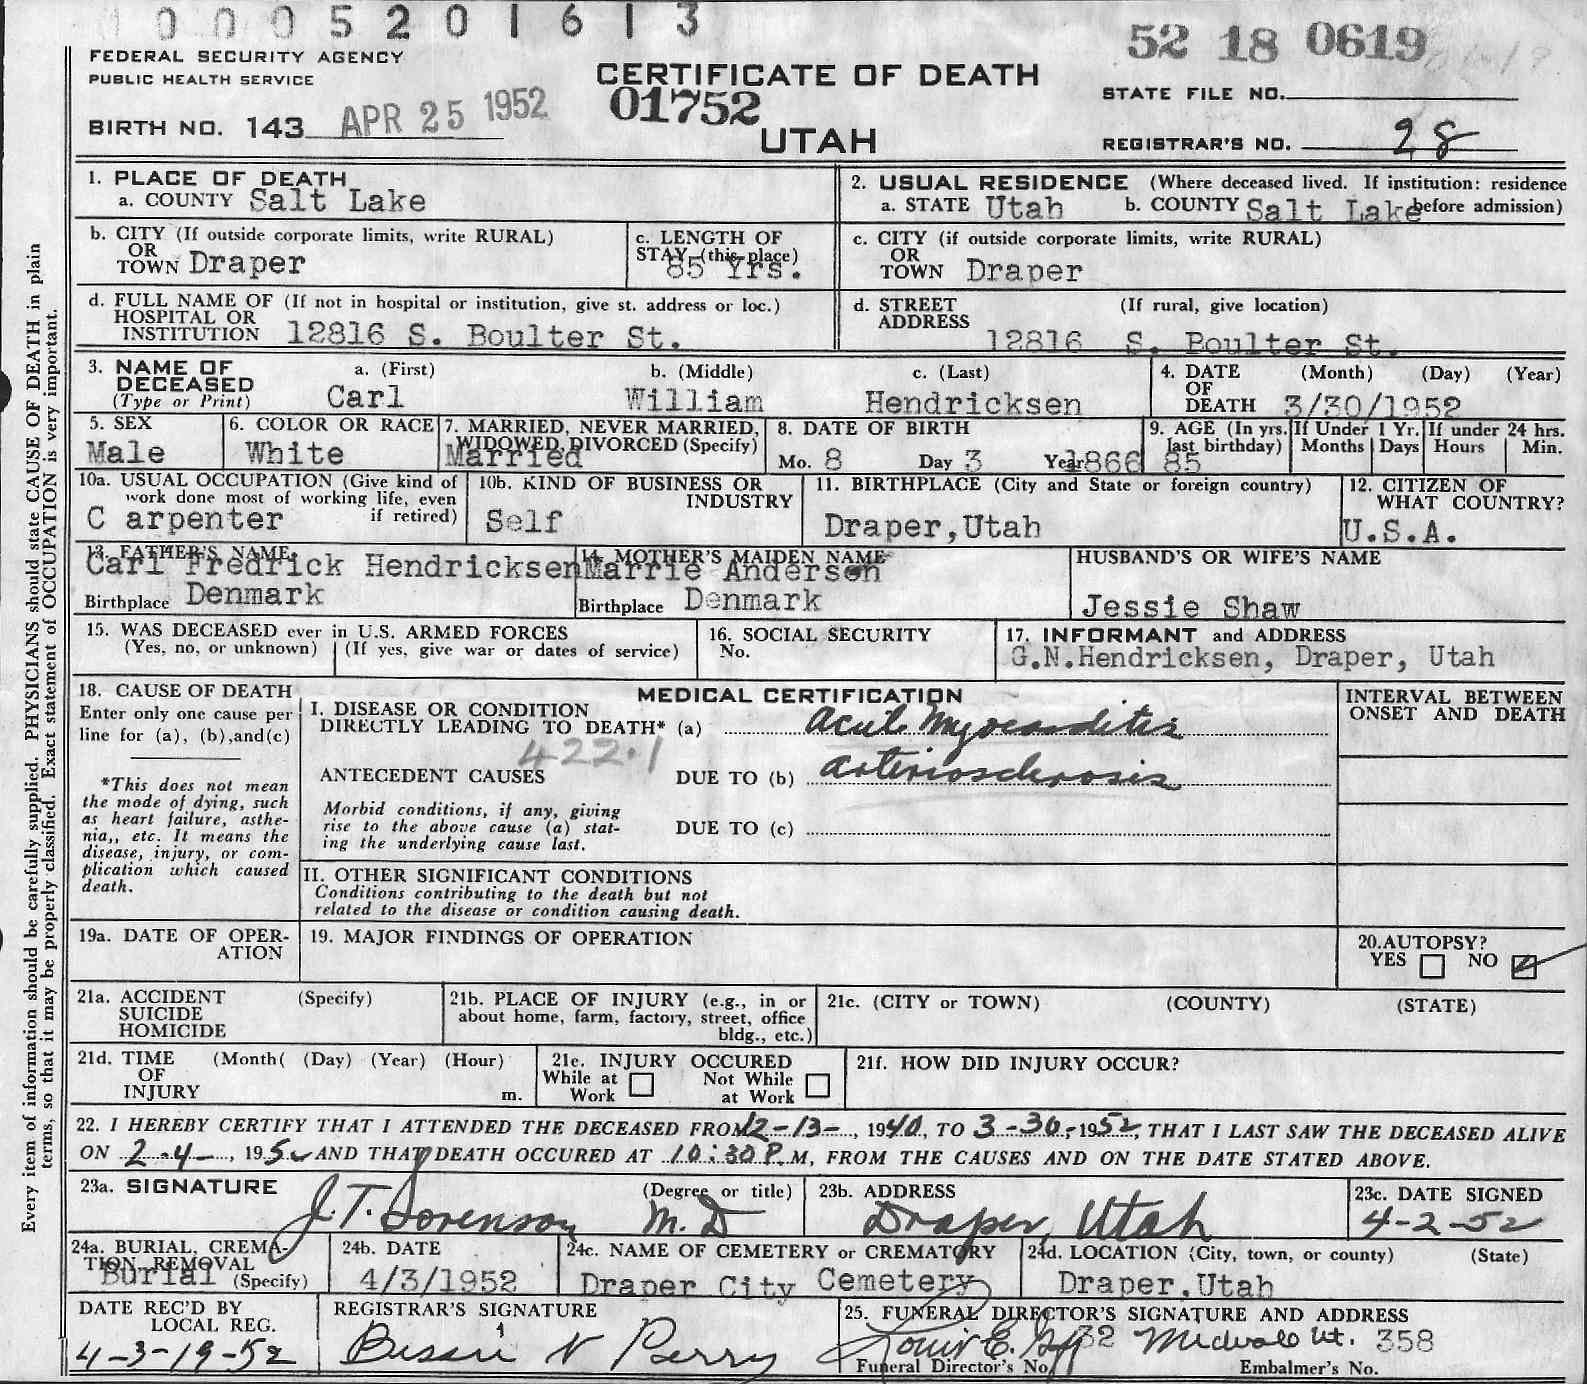 0005201613
52 18 0619
FEDERAL SECURITY AGENCY
PUBLIC HEALTH SERVICE
CERTIFICATE OF DEATH
STATE FILE NO.
BIRTH NO. 143 APR 25 1952
01752
UTAH
REGISTRAR'S NO. 28
1. PLACE OF DEATH
a. COUNTY Salt Lake
2. USUAL RESIDENCE (Where deceased lived. If institution: residence before admission)
a. STATE Utah b. COUNTY Salt Lake
b. CITY (If outside corporate limits, write RURAL)
OR
TOWN Draper
c. LENGTH OF
STAY (this place)
85 Yrs.
c. CITY (if outside corporate limits, write RURAL)
OR
TOWN Draper
d. FULL NAME OF (If not in hospital or institution, give st. address or loc.)
HOSPITAL OR
INSTITUTION 12816 S. Boulter St.
d. STREET (If rural, give location)
ADDRESS 12816 S. Boulter St.
3. NAME OF DECEASED
(Type or Print)
a. (First) b. (Middle) c. (Last)
Carl William Hendricksen
4. DATE (Month) (Day) (Year)
OF
DEATH 3/30/1952
5. SEX
Male
6. COLOR OR RACE
White
7. MARRIED, NEVER MARRIED,
WIDOWED, DIVORCED (Specify)
Married
8. DATE OF BIRTH
Mo. 8 Day 3 Year 1866
9. AGE (In yrs. last birthday)
85
If Under 1 Yr.
Months Days
If under 24 hrs.
Hours Min.
10a. USUAL OCCUPATION (Give kind of
work done most of working life, even
if retired)
C arpenter
10b. KIND OF BUSINESS OR
INDUSTRY
Self
11. BIRTHPLACE (City and State or foreign country)
Draper,Utah
12. CITIZEN OF
WHAT COUNTRY?
U.S.A.
13. FATHER'S NAME
Carl Fredrick Hendricksen
Birthplace Denmark
14. MOTHER'S MAIDEN NAME
Marrie Anderson
Birthplace Denmark
HUSBAND'S OR WIFE'S NAME
Jessie Shaw
15. WAS DECEASED ever in U.S. ARMED FORCES
(Yes, no, or unknown) (If yes, give war or dates of service)
16. SOCIAL SECURITY
No.
17. INFORMANT and ADDRESS
G.N.Hendricksen, Draper, Utah
18. CAUSE OF DEATH
Enter only one cause per
line for (a), (b),and(c)
*This does not mean
the mode of dying, such
as heart failure, asthe-
nia,, etc. It means the
disease, injury, or com-
plication which caused
death.
MEDICAL CERTIFICATION
INTERVAL BETWEEN
ONSET AND DEATH
I. DISEASE OR CONDITION
DIRECTLY LEADING TO DEATH* (a) Acute Myocarditis
422.1
ANTECEDENT CAUSES DUE TO (b) arteriosclerosis
Morbid conditions, if any, giving
rise to the above cause (a) stat-
ing the underlying cause last.
DUE TO (c)
II. OTHER SIGNIFICANT CONDITIONS
Conditions contributing to the death but not
related to the disease or condition causing death.
19a. DATE OF OPER-
ATION
19. MAJOR FINDINGS OF OPERATION
20.AUTOPSY?
YES NO
21a. ACCIDENT (Specify)
SUICIDE
HOMICIDE
21b. PLACE OF INJURY (e.g., in or
about home, farm, factory, street, office
bldg., etc.)
21c. (CITY or TOWN) (COUNTY) (STATE)
21d. TIME (Month( (Day) (Year) (Hour)
OF
INJURY m.
21e. INJURY OCCURED
While at Work Not While at Work
21f. HOW DID INJURY OCCUR?
22. I HEREBY CERTIFY THAT I ATTENDED THE DECEASED FROM 12-13-, 1940, TO 3-30-, 1952, THAT I LAST SAW THE DECEASED ALIVE
ON 2-4-, 1952 AND THAT DEATH OCCURED AT 10:30 P.M, FROM THE CAUSES AND ON THE DATE STATED ABOVE.
23a. SIGNATURE (Degree or title)
J.T. Sorenson M.D
23b. ADDRESS
Draper, Utah
23c. DATE SIGNED
4-2-52
24a. BURIAL, CREMA-
TION, REMOVAL
(Specify)
Burial
24b. DATE
4/3/1952
24c. NAME OF CEMETERY or CREMATORY
Draper City Cemetery
24d. LOCATION (City, town, or county) (State)
Draper,Utah
DATE REC'D BY
LOCAL REG.
4-3-19-52
REGISTRAR'S SIGNATURE
Perry
25. FUNERAL DIRECTOR'S SIGNATURE AND ADDRESS
Louis E. 32 Midvale Ut. 358
Funeral Director's No. Embalmer's No.
Every item of information should be carefully supplied. PHYSICIANS should state CAUSE OF DEATH in plain
terms, so that it may be properly classified. Exact statement of OCCUPATION is very important.